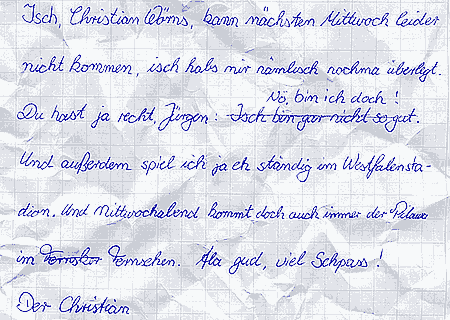 Isch, Christian Wörns, kann nächsten Mittwoch leider
nicht kommen, isch habs mir nämlisch nochma überligt.
Nö, bin ich doch!
Du hast ja recht, Jürgen: Isch bin gar nicht so gut.
Und außerdem spiel ich ja eh ständig im Westfalensta-
dion. Und Mittwochabend kommt doch auch immer der Pilawa
im Fernsher Fernsehen. Ala gud, viel Schpass!
Der Christian